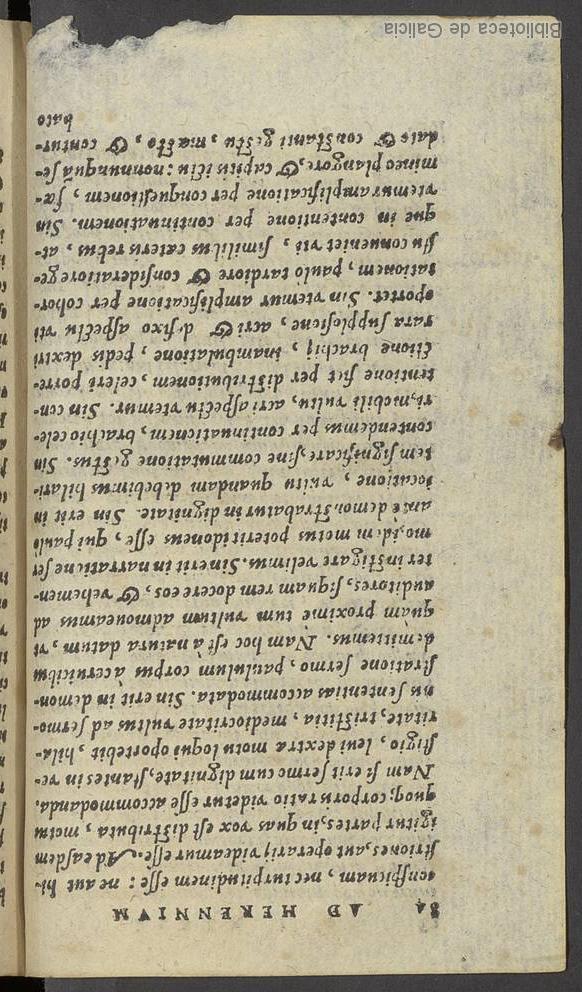 84 AD HERENNIVM
conspicuam, nec turpitudinem esse: ne aut hi-
striones, aut operarij videamur esse. Ad easdem
igitur partes, in quas vox est distributa, motus
quoq; corporis ratio videtur esse accommodanda.
Nam si erit sermo cum dignitate, stantes in ve-
stigio, leui dextra motu loqui oportebit, hila-
ritate, tristitia, mediocritate vultus ad sermo-
nis sententias accommodata. Sin erit in demon-
stratione sermo, paululum corpus à ceruicibus
demittemus. Nam hoc est à natura datum, vt
quam proximè tum vultum admoueamus ad
auditores, si quam rem docere eos, & vehemen-
ter instigare velimus. Sin erit in narratione ser
mo, idem motus poterit idoneus esse, qui paulo
antè demonstrabatur in dignitate. Sin erit in
iocatione, vultu quandam debebimus hilari-
tatem significare, sine commutatione gestus. Sin
contendemus per continuationem, brachio cele-
ri, mobili vultu, acri aspectu vtemur. Sin con-
tentione fiet per distributionem, celeri porre-
ctione brachij, inambulatione, pedis dextri
rara supplosione, acri & defixo aspectu vti
oportet. Sin vtemur amplificatione per cohor-
tationem, paulo tardiore & consideratiore ge-
stu conueniet vti, similibus cæteris rebus, at-
que in contentione per continuationem. Sin
vtemur amplificatione per conquestionem, fœ-
mineo plangore, & capitis ictu: nonnunquã se-
dato & constanti gestu, mœsto, & contur-
bato
Biblioteca de Galicia